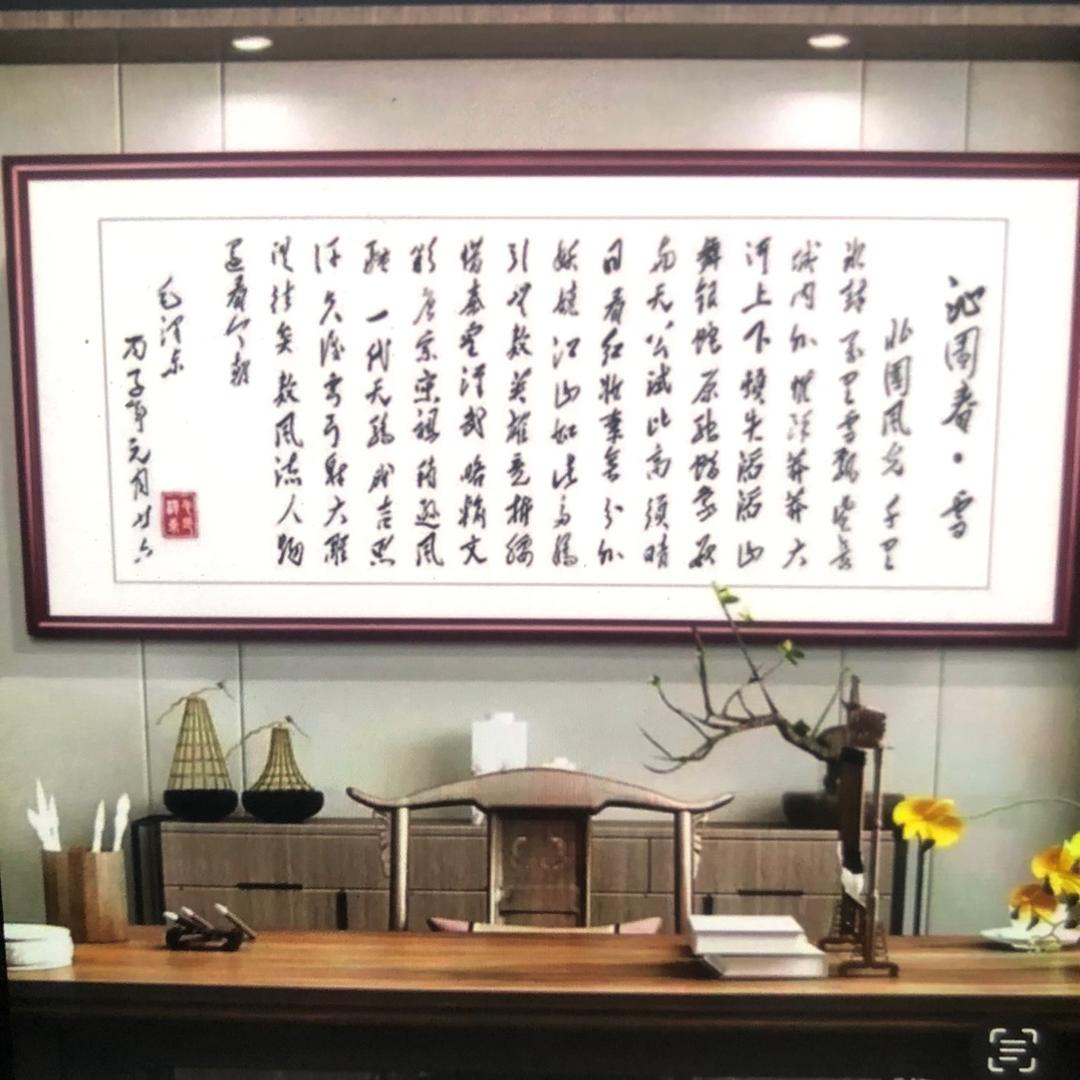 沁園春·雪
北國風光 千里
冰封 万里雪飘 望长
城内外 惟余莽莽 大
河上下 顿失滔滔 山
舞银蛇 原驰蜡象 欲
与天公试比高 须晴
日看红妆素裹 分外
妖娆 江山如此多娇
引无数英雄竞折腰
惜秦皇汉武 略输文
彩 唐宗宋祖 稍逊风
骚 一代天骄成吉思
汗 只识弯弓射大雕
俱往矣 数风流人物
还看今朝
毛泽东
丙子年元月廿六